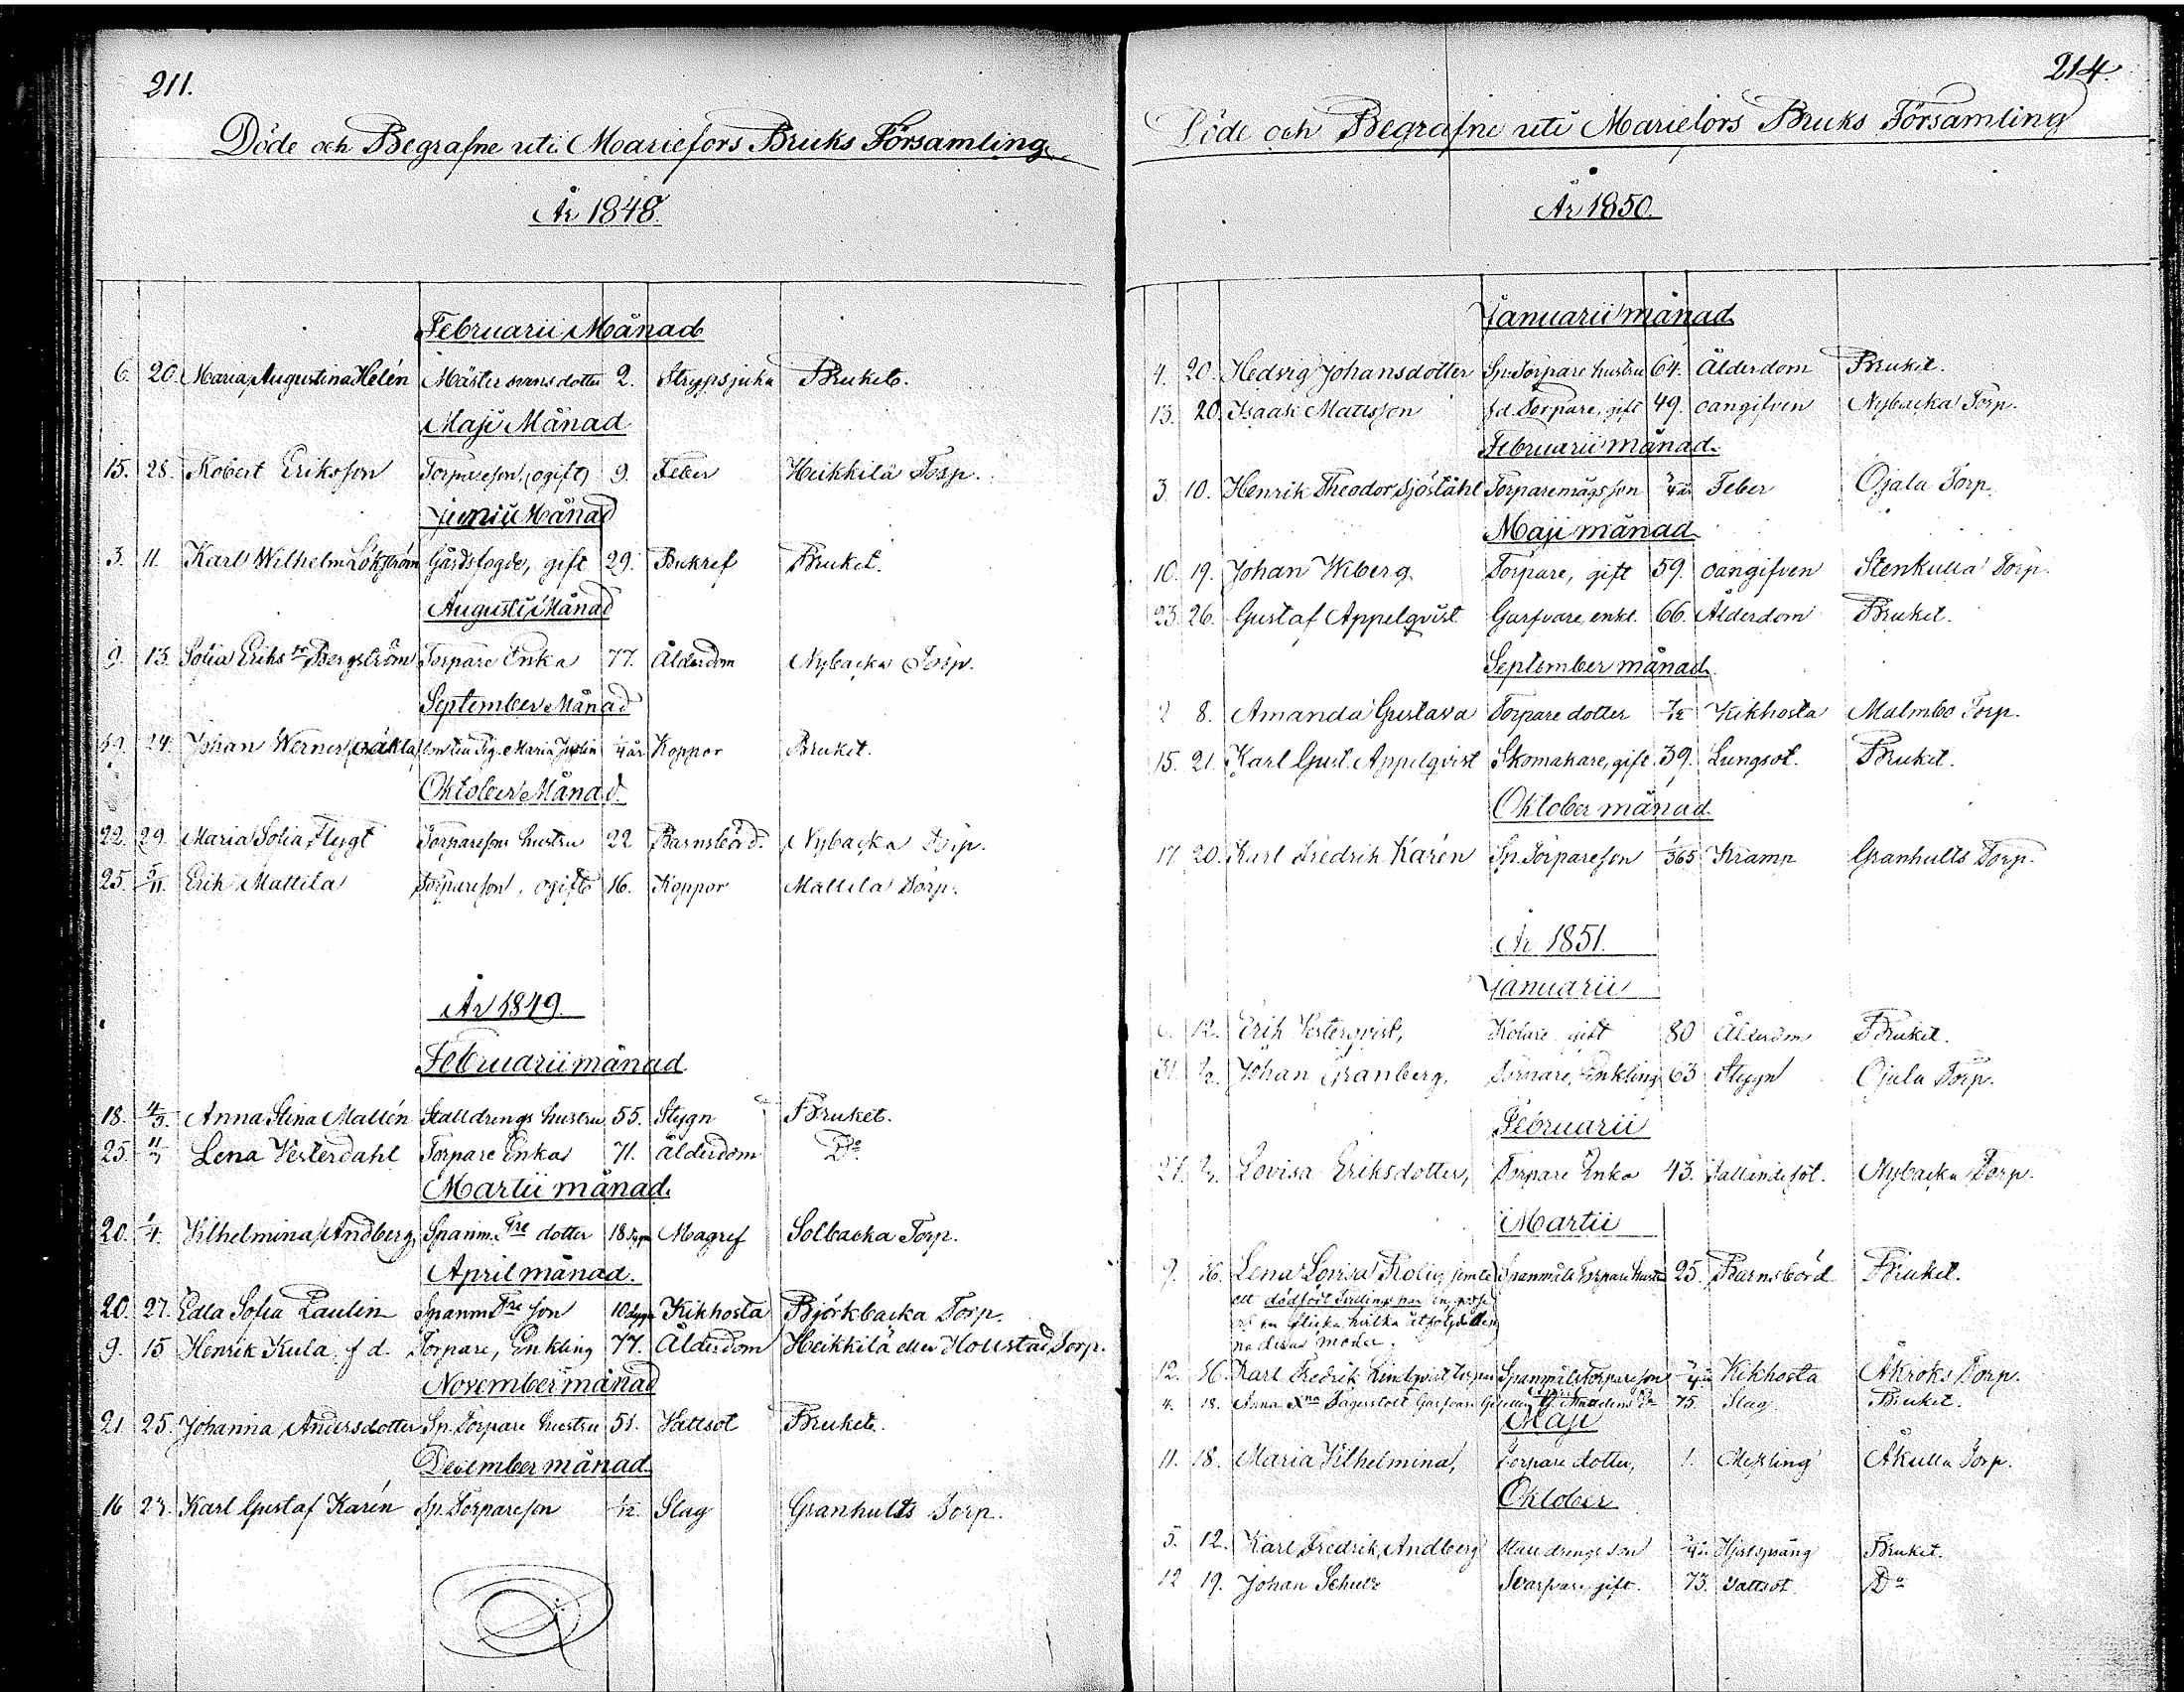 211.
Döde och Begrafne uti Mariefors Bruks Församling
År 1848.
Februarii Månad
6. 20. Maria Augustina Helén Mästersvens dotter 2. Strypsjuka Bruket.
Maji Månad
15. 28. Robert Eriksson Torpareson, (ogift) 9. Feber Heikkilä Torp.
Junii Månad
3. 11. Karl Wilhelm Lökström Gårdsfogde, gift 29. Bukref Bruket.
Augusti Månad
9. 13. Sofia Eriks dr Bergström Torpare Enka 77. Ålderdom Nybacka Torp.
September Månad
19. 24. Johan Werner, oäkta Maria Justin 1/4 år Koppor Bruket.
Oktober Månad.
22. 29. Maria Sofia Flygt Torparesons hustru 22 Barnsbörd. Nybacka Torp.
25. 5/11. Erik Mattila Torpareson, ogift 16. Koppor Mattila Torp.
År 1849.
Februarii månad
18. 4/3. Anna Stina Mallén Stalldrengs hustru 55. Stygn Bruket.
25. 11/3 Lena Vesterdahl Torpare Enka 71. Ålderdom Do
Martii månad.
20. 1/4. Vilhelmina Andberg, Spanm. Tre dotter 18 dygn Magref Solbacka Torp.
April månad.
20. 27. Edla Sofia Paulin Spanm. Tre son 10 dygn Kikhosta Björkbacka Torp.
9. 15 Henrik Kula f d. Torpare, Enkling 77. Ålderdom Heikkilä eller Hollstad Torp.
November månad
21. 25. Johanna Andersdotter Sp. Torpare hustru 51. Vattsot Bruket.
December månad.
16 23. Karl Gustaf Karén Sp. Torpareson 1/12. Slag Granhults Torp.
214.
Döde och Begrafne uti Mariefors Bruks Församling
År 1850.
Januarii månad
4. 20. Hedvig Johansdotter Sp. Torpare hustru 64. Ålderdom Bruket.
13. 20. Isaak Mattsson fd. Torpare, gift 49. oangifven Nybacka Torp.
Februarii månad.
3. 10. Henrik Theodor Sjöståhl Torparemågs son Feber Ojala Torp.
Maji månad
10. 19. Johan Wiberg Torpare, gift 59. oangifven Stenkulla Torp.
23. 26. Gustaf Appelqvist Garfvare, enkl. 66. Ålderdom Bruket.
September månad
2 8. Amanda Gustava Torpare dotter 7/12 Kikhosta Malmbo Torp.
15. 21. Karl Gust. Appelqvist Skomakare, gift 39. Lungsot. Bruket.
Oktober månad.
17. 20. Karl Fredrik Karén Sp. Torpareson 1/365 Kramp Granhults Torp.
År 1851.
Januarii
12. Erik Vesterqvist, Kolare gift 80 Ålderdom Bruket.
31. Johan Granberg, Torpare, Enkling 63 Stygn Ojala Torp.
Februarii
27. Lovisa Eriksdotter, Torpare Enka 43. Fallandesot. Nybacka Torp.
Martii
9. 16. Lena Lovisa Spanmåls Torpare hustru 25. Barnsbörd Bruket.
ett dödfödt Tvillingspar en gosse
och en flicka hvilka
deras moder.
12. 16. Karl Fredrik Lindqvist Spanmåls Torpareson Kikhosta Åkroks Torp.
4. 18. Anna Garfvare 75. Slag Bruket.
Maji
11. 18. Maria Vilhelmina, Torpare dotter, 1. Messling Åkulla Torp.
Oktober
5. 12. Karl Fredrik Andberg Stalldrengs son Hjertsprång Bruket.
12 19. Johan Schulz Svarfvare, gift. 73. Vattsot. Do